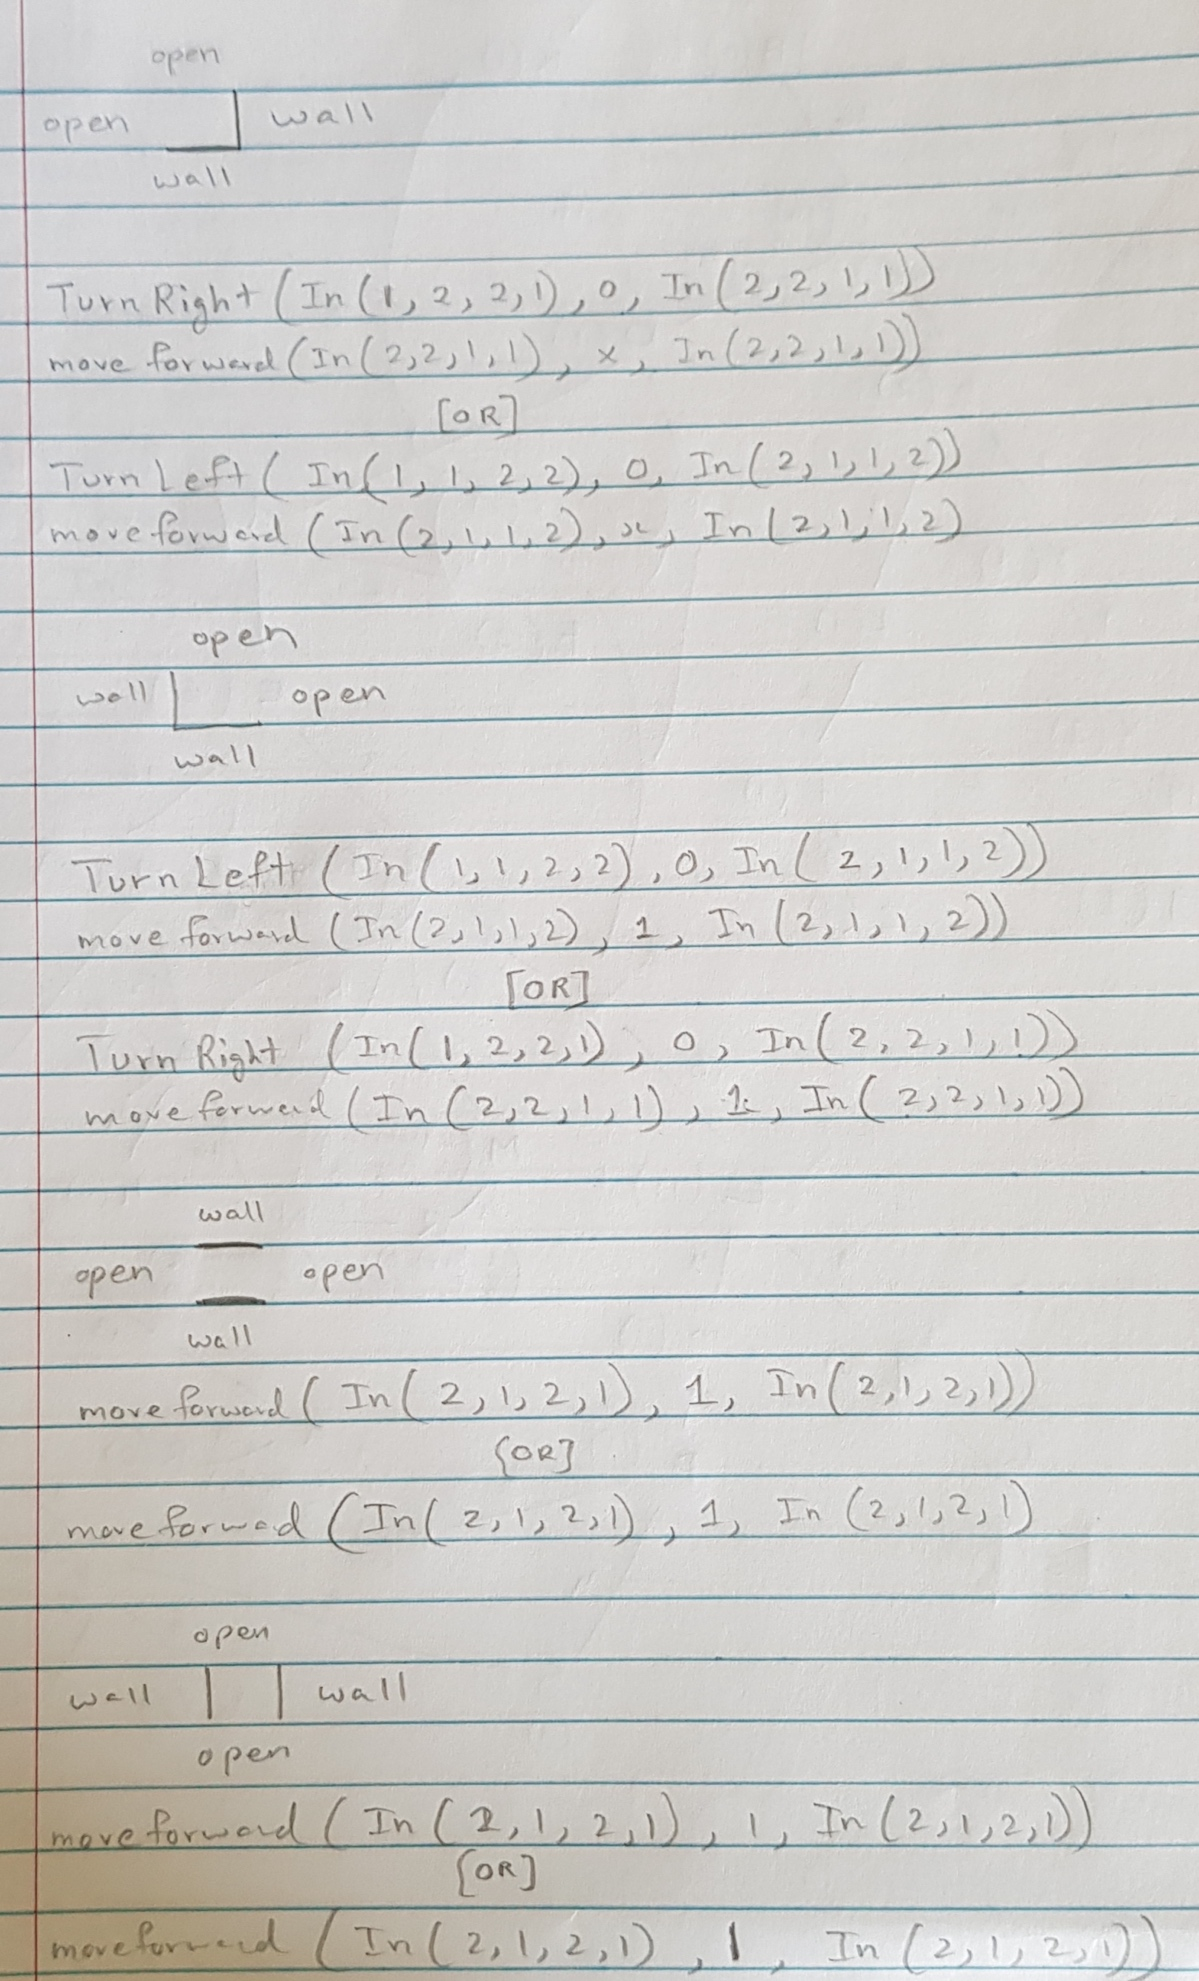 open
open wall
wall
Turn Right (In(1, 2, 2, 1), 0, In(2, 2, 1, 1))
move forward (In(2,2,1,1), x, In(2,2,1,1))
[OR]
Turn Left ( In(1, 1, 2, 2), 0, In(2, 1, 1, 2))
move forward (In(2,1,1,2), x, In(2,1,1,2)
open
wall open
wall
Turn Left (In(1,1,2,2), 0, In(2,1,1,2))
move forward (In(2,1,1,2), 1, In(2,1,1,2))
[OR]
Turn Right (In(1,2,2,1), 0, In(2,2,1,1))
move forward (In(2,2,1,1), 1, In(2,2,1,1))
wall
open open
wall
move forward (In(2,1,2,1), 1, In(2,1,2,1))
[OR]
move forwad (In(2,1,2,1), 1, In(2,1,2,1)
open
wall wall
open
move forward (In(2,1,2,1), 1, In(2,1,2,1))
[OR]
move forward (In(2,1,2,1), 1, In(2,1,2,1))